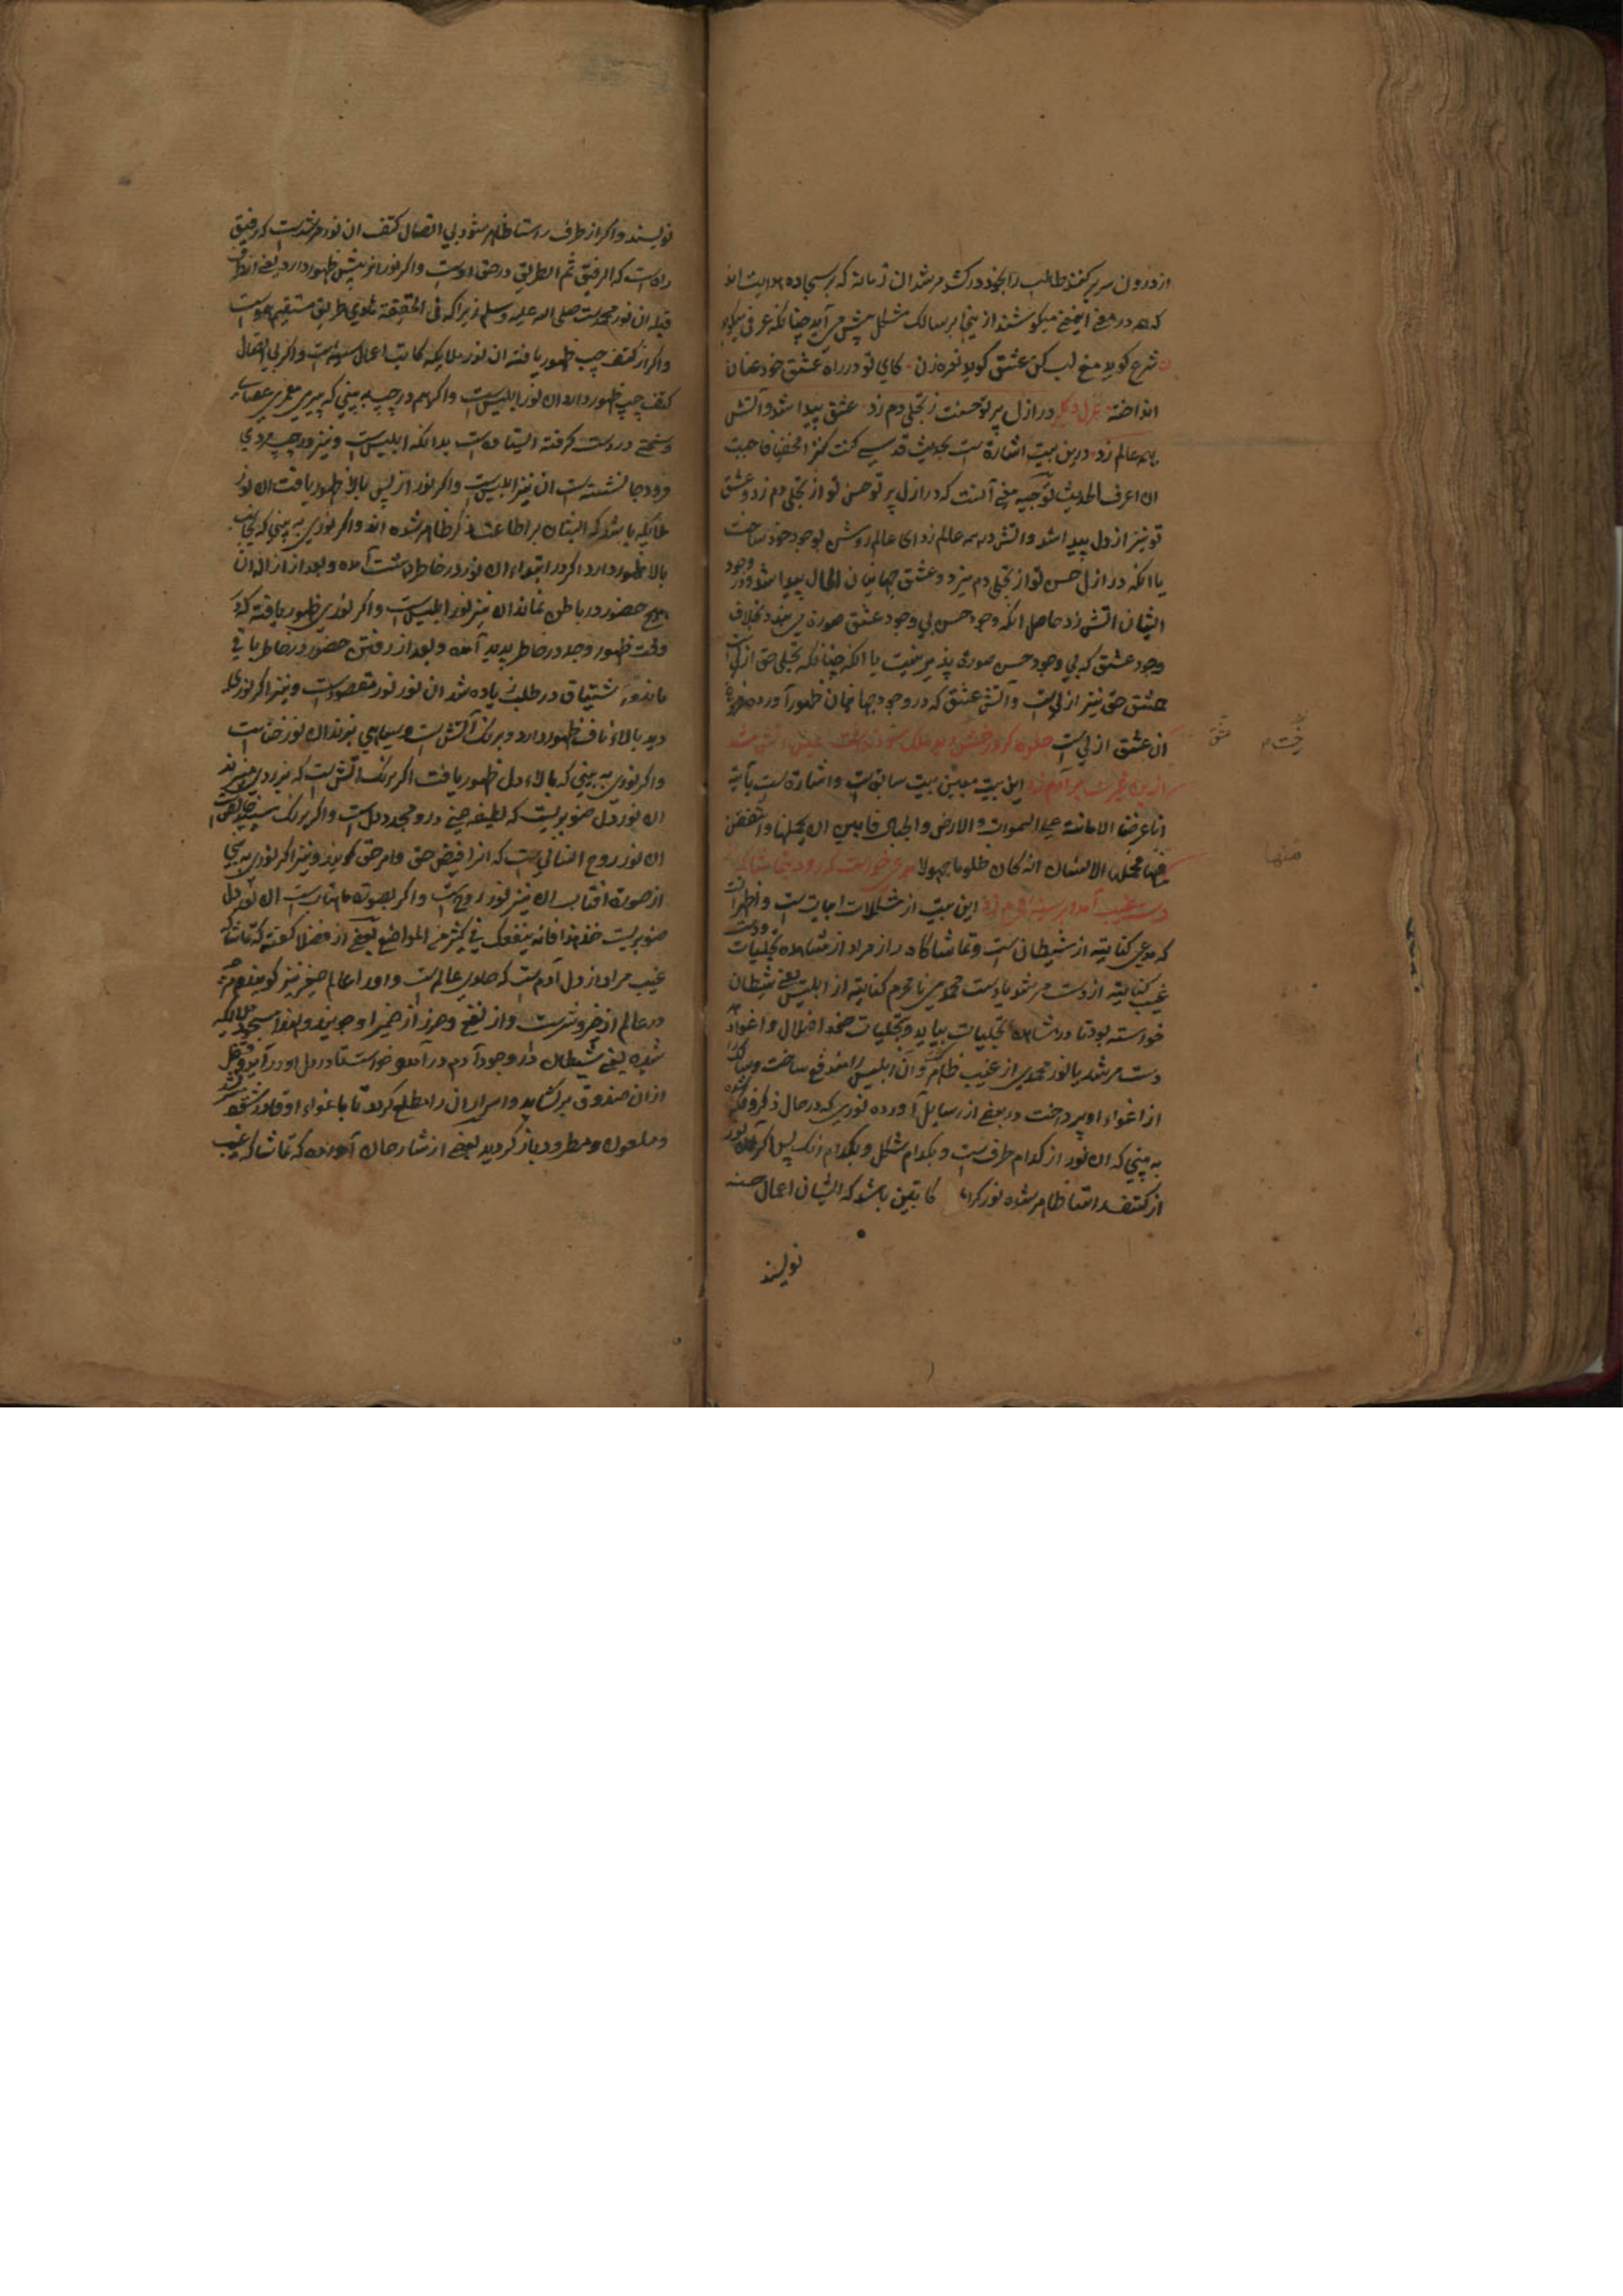 از درون سر بر کنند طالب را بخود درکشد مرشدان زمانه که بر سجاده هدایت اند
که هم در معنی میکوشند از ینجا بر سالک مشکل پیش می آید چنانکه عرفی میکوید
شرع کوید منع لب کن عشق کوید نعره زن کای تو در راه عشق خود عنان
انداخته غزل دیکر در ازل پرتو حسنت ز تجلی دم زد عشق پیدا شد و آتش
بهمه عالم زد درین بیت اشارة است بحدیث قدسی کنت کنزا مخفیا فاحببت
ان اعرف الحدیث توجیه معنی آنست که در ازل پرتو حسن تو از تجلی دم زد و عشق
تو نیز از دل پیدا شد و آتش در همه عالم زد ای عالم روشن بوجود خود ساخت
یا انکه در ازل حسن تو از تجلی دم میزد و عشق جهانیان فی الحال پیدا شد و در وجود
ایشان آتش زد حاصل انکه وجود حسن بی وجود عشق صورة می بندد بخلاف
وجود عشق که بی وجود حسن صورة پذیر نیست یا انکه چنانکه تجلی حق ازلی است
عشق حق نیز ازلی است و آتش عشق که در وجود جهانیان ظهور آورده
آن عشق ازلی است جلوه کرد رخش دید ملک عشق نداشت عین آتش شد
ازین غیرت بر آدم زد این بیت مبین بیت سابق است و اشارة است بآیة
انا عرضنا الامانة علی السموات و الارض و الجبال فابین ان یحملنها و اشفقن
منها و حملها الانسان انه کان ظلوما جهولا مدعی خواست که رود بتماشاکه
دست غیب آمد و بر سینه نامحرم زد این بیت از مشکلات ابیات است و اظهر آنست
که مدعی کنایة از شیطان است و تماشاکاه راز مراد از مشاهده تجلیات و دست
غیب کنایة از دست مرشد یا دست محمدی نامحرم کنایة از ابلیس یعنی شیطان
خواسته بود تا در مشاهده تجلیات بیاید و تجلیات خود اضلال و اغواء
دست مرشد یا نور محمدی از غیب ظاهر کشت و آن ابلیس را دفع ساخت
از اغواء او بپرداخت در بعضی از رسایل آورده نوری که در حال ذکر و فکر
به بینی که ان نور از کدام طرف است و بکدام شکل و بکدام رنک پس اکر آن نور
از کتف راستا ظاهر شده نور کراما کاتبین باشد که ایشان اعمال حسنه
نویسند
عشق
منها
نویسند و اکر از طرف راستا ظاهر شود بی اتصال کتف ان نور مرشد است که رفیق
راه است که الرفیق ثم الطریق در حق اوست و اکر نور از پیش ظهور دارد یعنی از طرف
قبله ان نور محمد است صلی الله علیه وسلم زیرا که فی الحقیقة هادی طریق مستقیم هموست
و اکر از کتف چپ ظهور یافته ان نور ملایکه کاتب اعمال سیئه است و اکر بی اتصال
کتف چپ ظهور دارد ان نور ابلیس است و اکر هم در چپ به بینی که پیری معمری عصای
و در دست کرفته ایستاده است بدانکه ابلیس است و نیز در چپ مردی
فرود جا نشسته است ان نیز ابلیس است و اکر نور از پس بالا ظهور یافت ان نور
ملایکه باشد که ایشان ظاهر شده اند و اکر نوری به بینی که بجانب
بالا ظهور دارد اکر در ابتداء ان نور در خاطر دهشت آمده و بعد از ازاله ان
هیچ حضور در باطن نماند ان نیز نور ابلیس است و اکر نوری ظهور یافته که در
وقت ظهور وجد در خاطر پدید آمده و بعد از رفتن حضور در خاطر باقی
ماند و اشتیاق در طلب زیاده شد ان نور نور مقصود است و نیز اکر نوری
دید بالاء ناف ظهور دارد و برنک آتش است و سیاهی میزند ان نور خناس است
و اکر نوری به بینی که بالاء دل ظهور یافت اکر برنک آتش است که بزردی میزند
ان نور دل صنوبریست که لطیفه غیبی درو مجدد دل است و اکر برنک سپید خالص است
ان نور روح انسانی است که انرا فیض حق و امر حق کویند و نیز اکر نوری به بینی
از صورة افتاب ان نیز نور روح است و اکر بصورة ماهتاب است ان نور دل
صنوبریست خذ هذا فانه ینفعک فی کثیر من المواضع بعضی از فضلا کفته که تماشاکه
غیب مراد از دل آدم است که حاوی عالم است و او را عالم صغیر نیز کویند
در عالم از خیر و شر است و از نفع و ضرر از ضمیر او جویند و لهذا مسجود ملایکه
شده یعنی شیطان در وجود آدم در آمد و خواست تا در دل او در آید و قفل
ازان صندوق برکشاید و اسرار ان را مطلع کردد تا باغواء او قادر شود
و ملعون و مطرود باز کردید بعضی از شارحان آورده که تماشاکه غیب